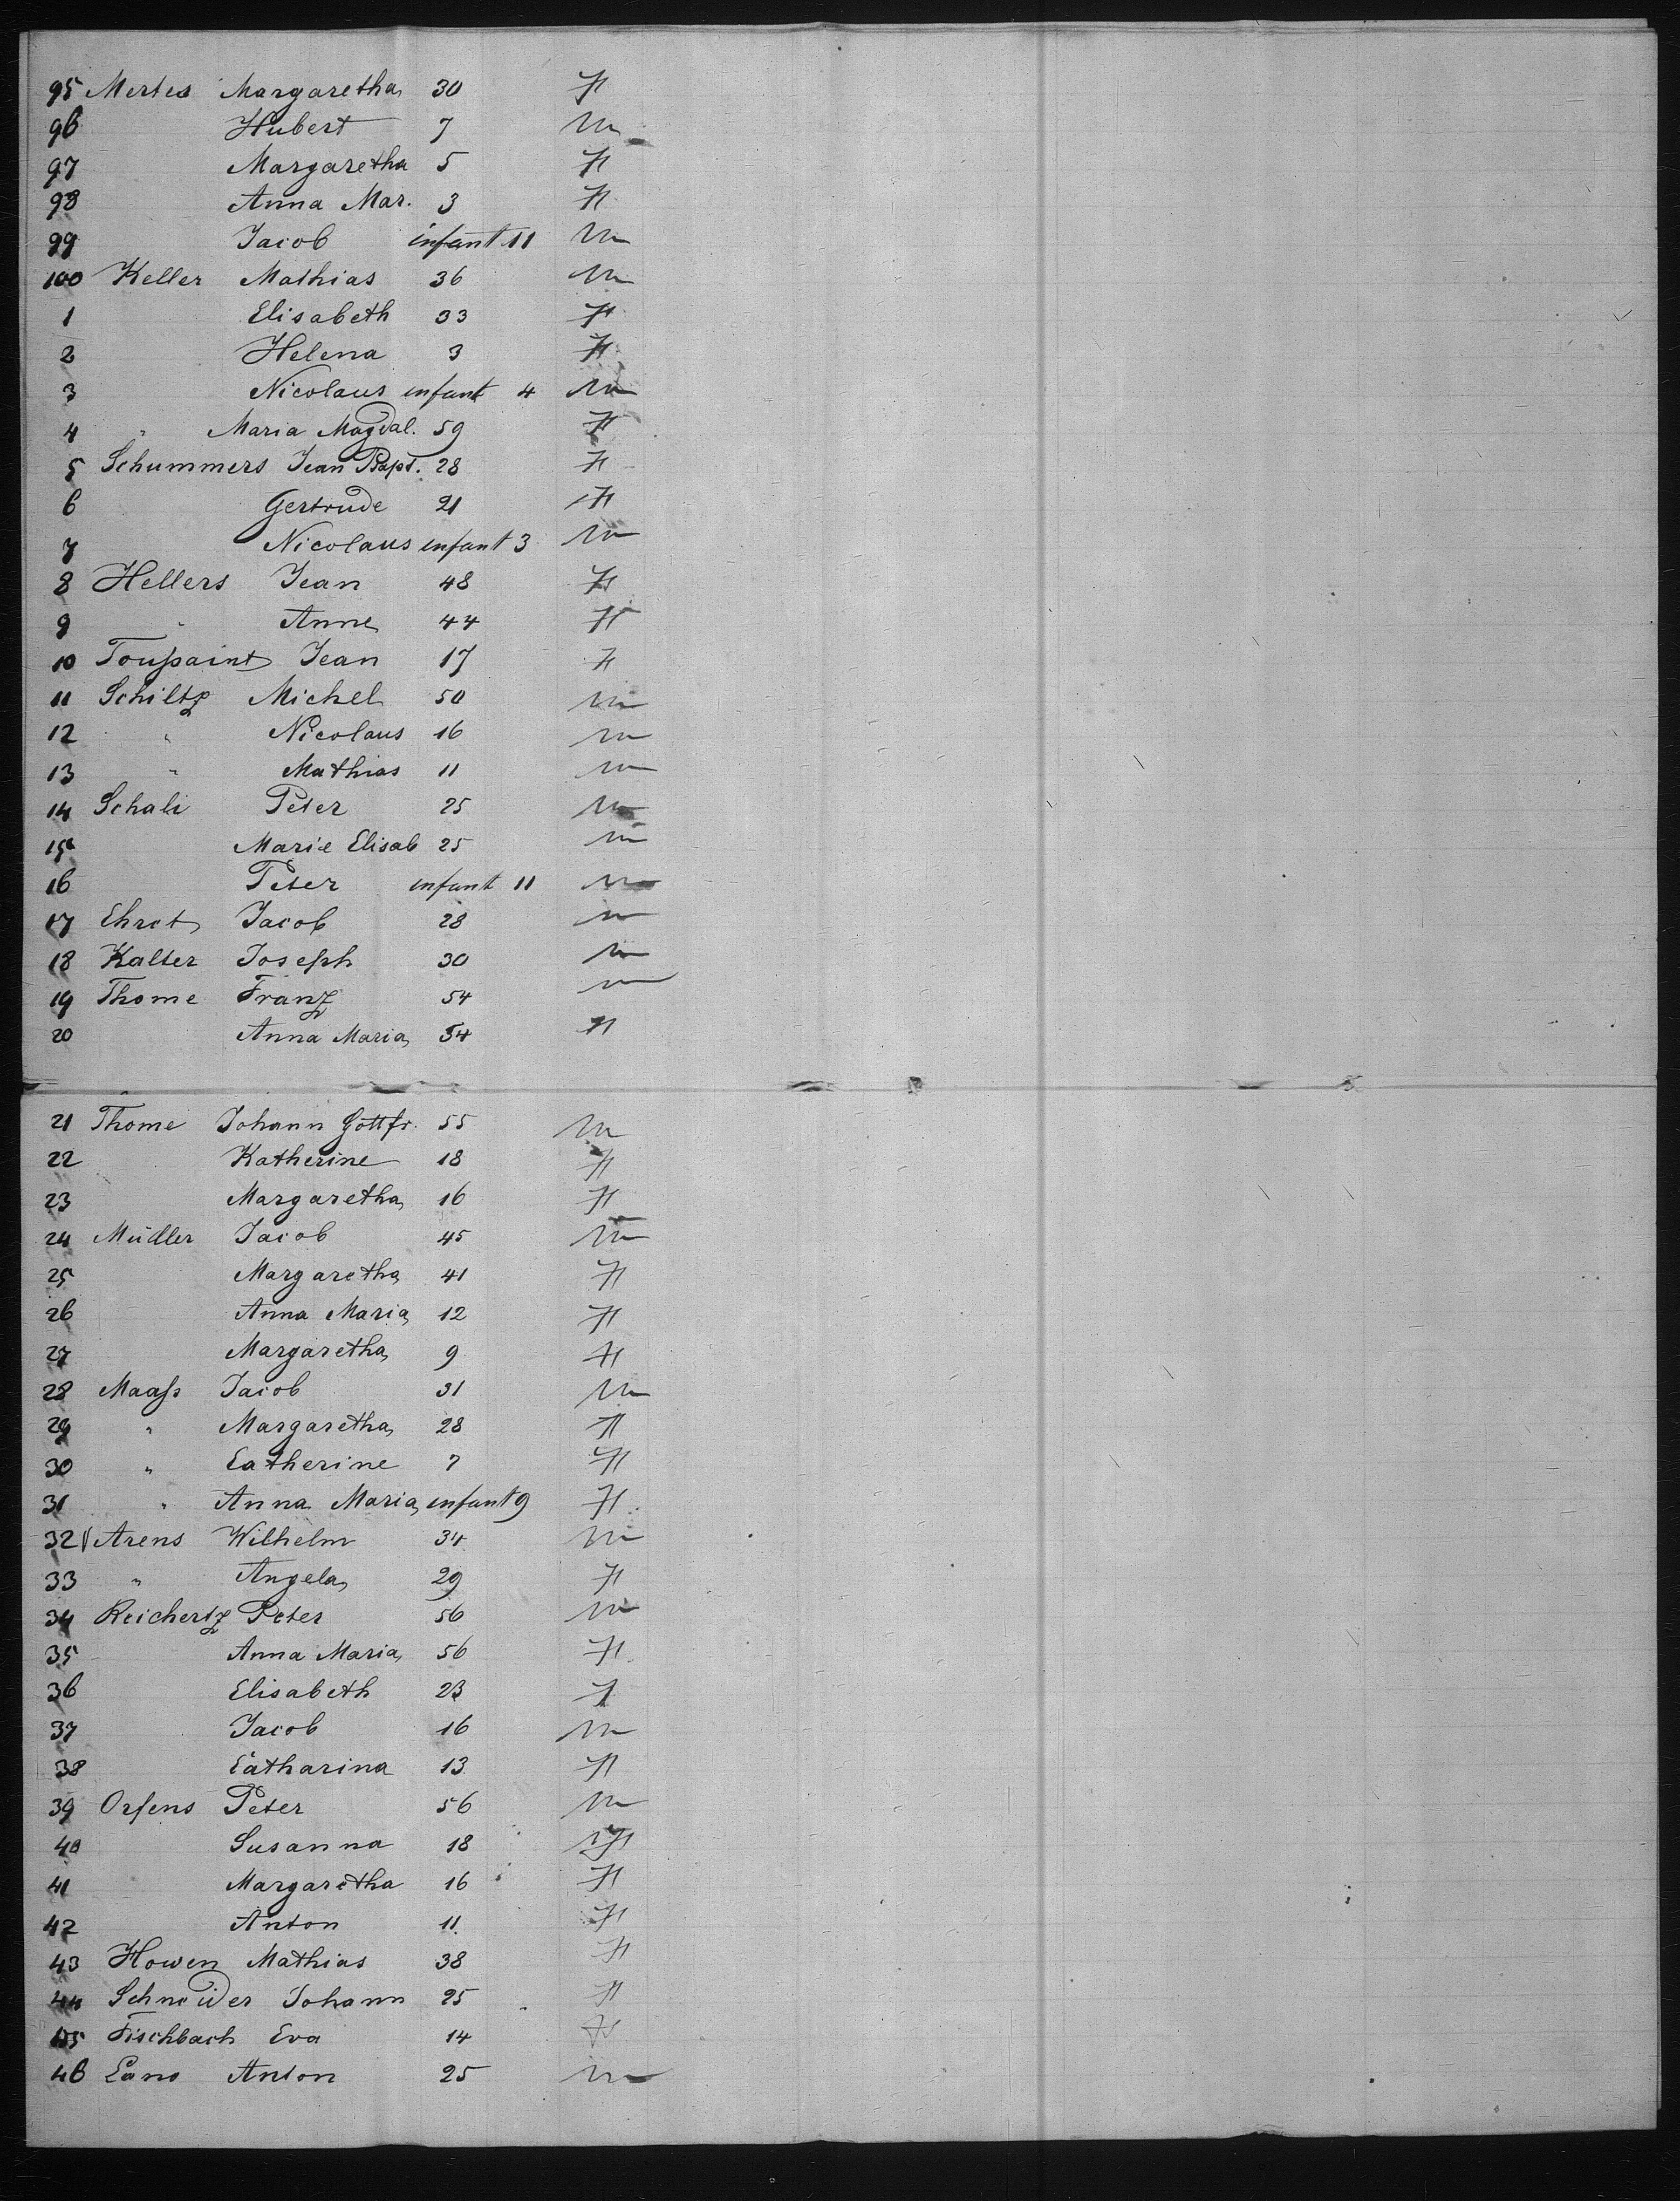 95 Mertes Margaretha 30 F
96 Hubert 7 M
97 Margaretha 5 F
98 Anna Mar. 3 F
99 Jacob infant 11 M
100 Keller Mathias 36 M
1 Elisabeth 33 F
2 Helena 3 F
3 Nicolaus infant 4 M
4 " Maria Magdal. 59 F
5 Schummers Jean Bapt. 28 F
6 Gertrude 21 F
7 Nicolaus infant 3 M
8 Hellers Jean 48 F
9 " Anne 44 F
10 Toussaint Jean 17 F
11 Schiltz Michel 50 M
12 " Nicolaus 16 M
13 " Mathias 11 M
14 Schali Peter 25 M
15 Marie Elisab 25 M
16 Peter infant 11 M
17 Ehret Jacob 28 M
18 Kalter Joseph 30 M
19 Thome Franz 54 M
20 Anna Maria 54 F
21 Thome Johann Gottfr. 55 M
22 Katherine 18 F
23 Margaretha 16 F
24 Müdler Jacob 45 M
25 Margaretha 41 F
26 Anna Maria 12 F
27 Margaretha 9 F
28 Maass Jacob 31 M
29 " Margaretha 28 F
30 " Catherine 7 F
31 " Anna Maria infant 9 F
32 Arens Wilhelm 34 M
33 " Angela 29 F
34 Reichertz Peter 56 M
35 Anna Maria 56 F
36 Elisabeth 23 F
37 Jacob 16 M
38 Catharina 13 F
39 Peter 56 M
40 Susanna 18 F
41 Margaretha 16 F
42 Anton 11 F
43 Howen Mathias 38 F
44 Schneider Johann 25 F
45 Fischbach Eva 14 F
46 Anton 25 M